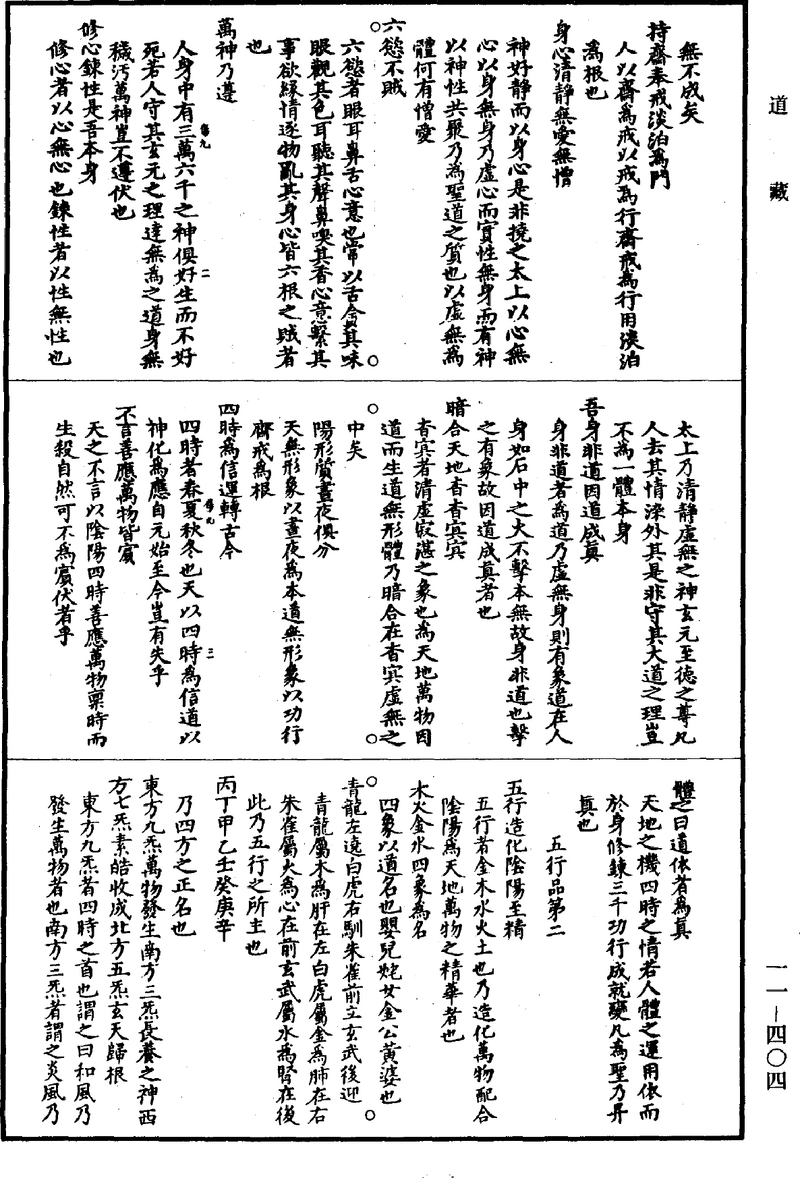 道藏
無不成矣
持齋奉戒淡泊為門
人以齋為戒以戒為行齋戒為行用淡泊
為根也
身心清靜無愛無憎
神好靜而以身心是非撓之太上以心無
心以身無身乃虛心而實性無身而有神
以神性共聚乃為聖道之質也以虛無為
體何有憎愛
六慾不賊
六慾者眼耳鼻舌心意也常以舌貪其味
眼觀其色耳聽其聲鼻嗅其香心意繫其
事欲緣情逐物亂其身心皆六根之賊者
也
萬神乃遵
人身中有三萬六千之神俱好生而不好
死若人守其玄元之理達無為之道身無
穢污萬神豈不遵伏也
修心鍊性是吾本身
修心者以心無心也鍊性者以性無性也
太上乃清靜虛無之神玄元至德之尊凡
人去其情深外其是非守其大道之理豈
不為一體本身
吾身非道因道成真
身非道者為道乃虛無身則有象道在人
身如石中之火不擊本無故身非道也擊
之有象故因道成真者也
暗合天地杳杳冥冥
杳冥者清虛寂湛之象也為天地萬物因
道而生道無形體乃暗合在杳冥虛無之
中矣
陽形質晝夜俱分
天無形象以晝夜為本道無形象以功行
齋戒為根
四時為信運轉古今
四時者春夏秋冬也天以四時為信道以
神化為應自元始至今豈有失乎
不言善應萬物皆賓
天之不言以陰陽四時善應萬物稟時而
生殺自然可不為賓伏者乎
體之曰道依者為真
天地之機四時之情若人體之運用依而
於身修鍊三千功行成就變凡為聖乃昇
真也
五行品第二
五行造化陰陽至精
五行者金木水火土也乃造化萬物配合
陰陽為天地萬物之精華者也
木火金水四象為名
四象以道名也嬰兒奼女金公黃婆也
青龍左遶白虎右馴朱雀前立玄武後迎
青龍屬木為肝在左白虎屬金為肺在右
朱雀屬火為心在前玄武屬水為腎在後
此乃五行之所主也
丙丁甲乙壬癸庚辛
乃四方之正名也
東方九炁萬物發生南方三炁長養之神西
方七炁素皓收成北方五炁玄天歸根
東方九炁者四時之首也謂之曰和風乃
發生萬物者也南方三炁者謂之炎風乃
一一－四〇四